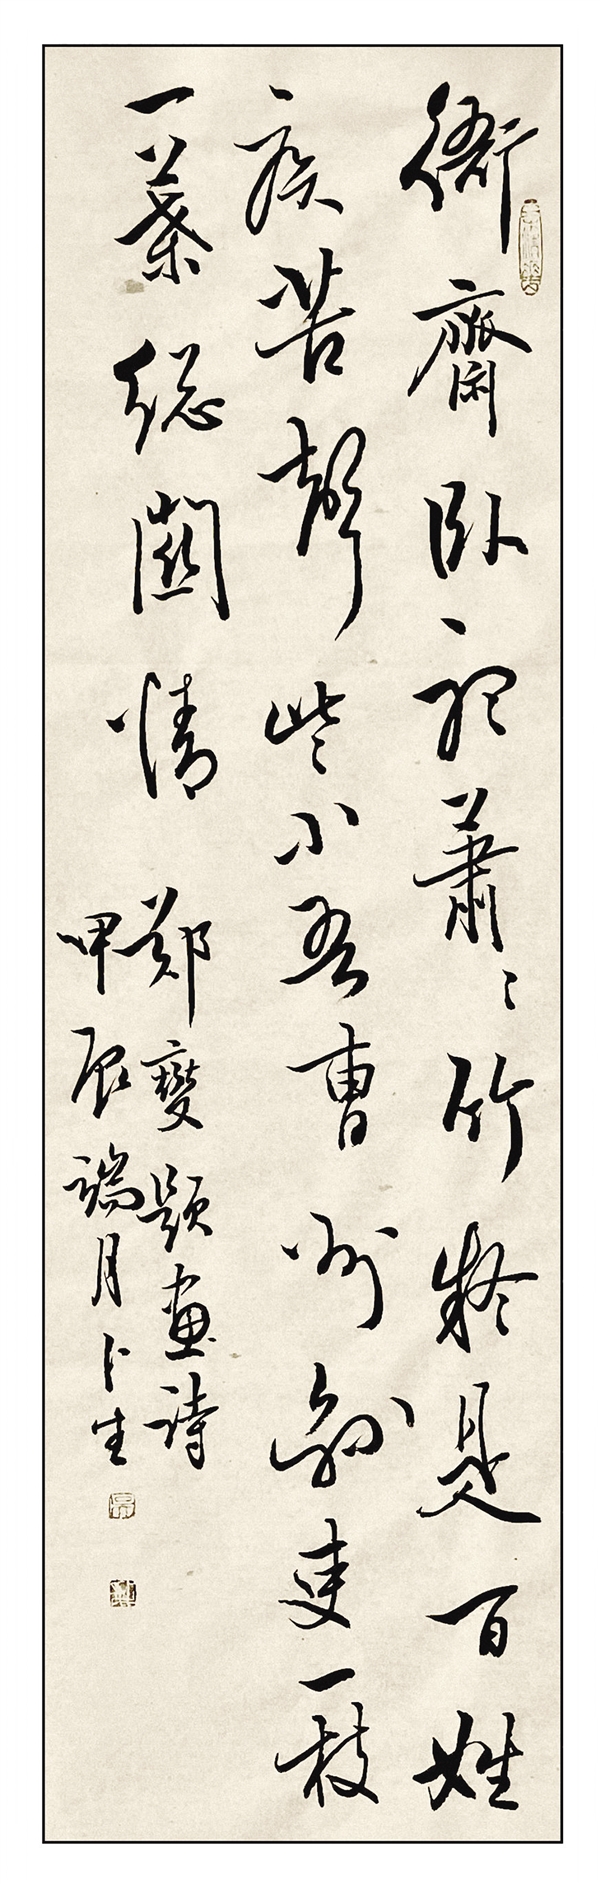 衙齋卧聽蕭蕭竹疑是百姓
疾苦聲些小吾曹州縣吏一枝
一葉總關情 鄭燮題畫詩
甲辰端月卜生